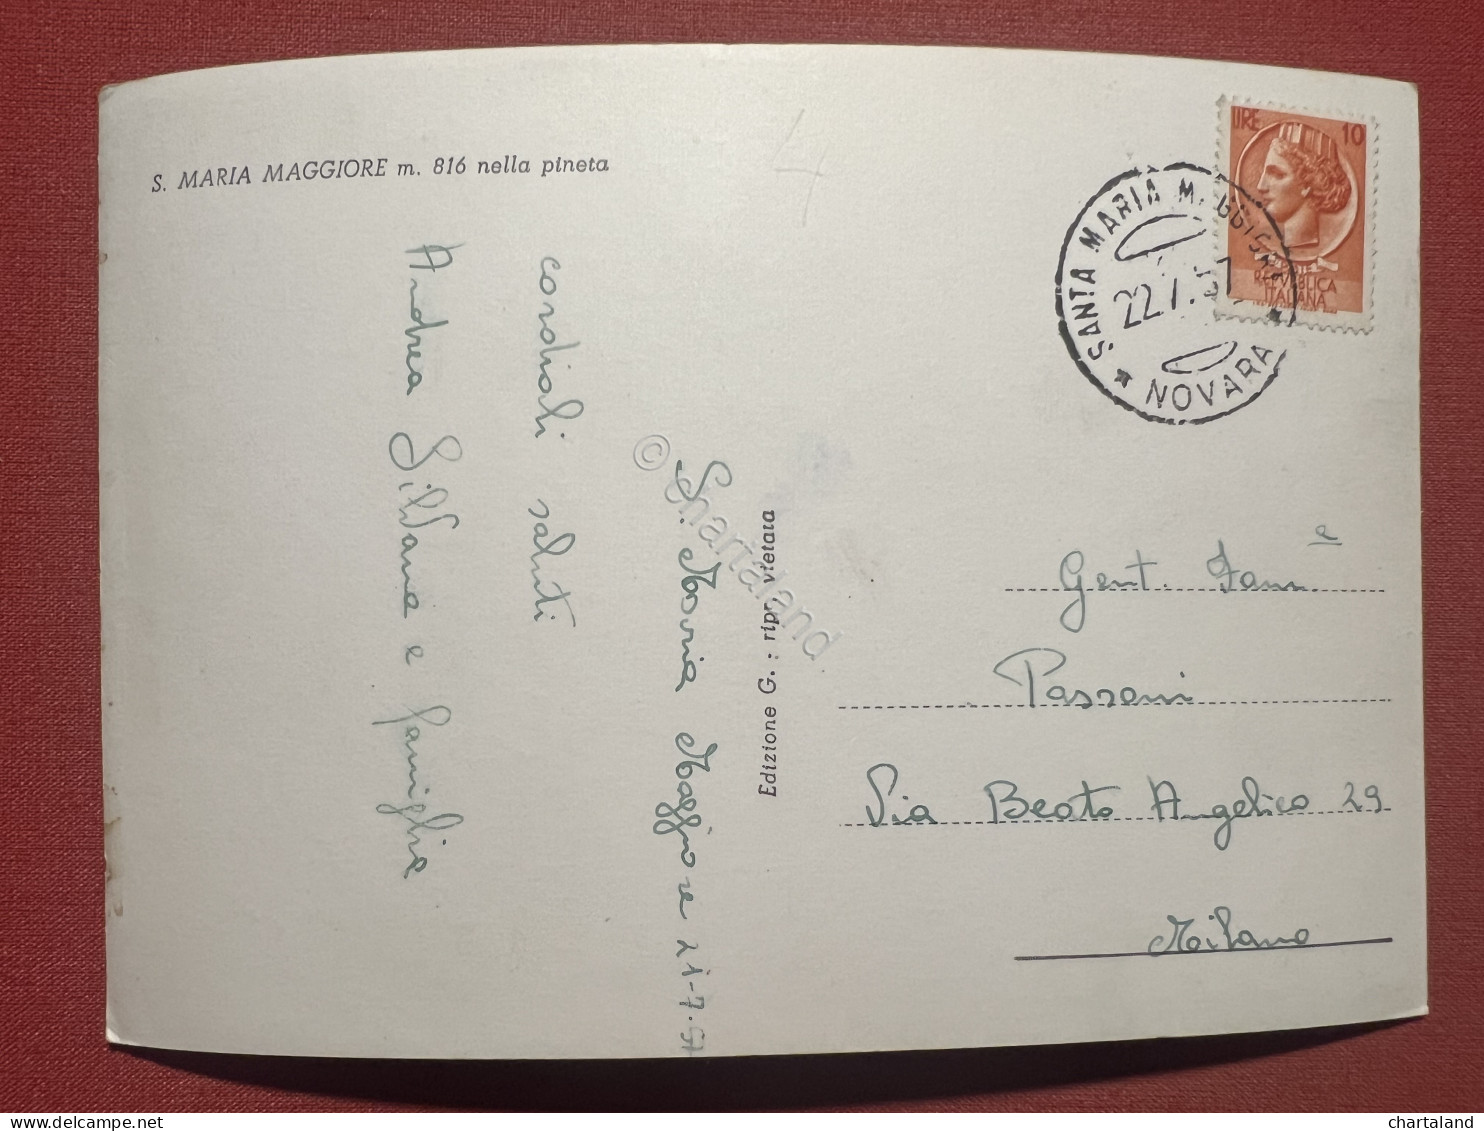 S. MARIA MAGGIORE m. 816 nella pineta
4
LIRE 10
REPVBBLICA
ITALIANA
SANTA MARIA MAGGIORE
22.7.57
* NOVARA *
S. Maria Maggiore 21-7-57
cordiali saluti
Andrea Silvana e famiglia
Edizione G. : ripr. vietata
Gent. Fam.a
Passeni
Via Beato Angelico 29
Milano
© Chartaland
chartaland